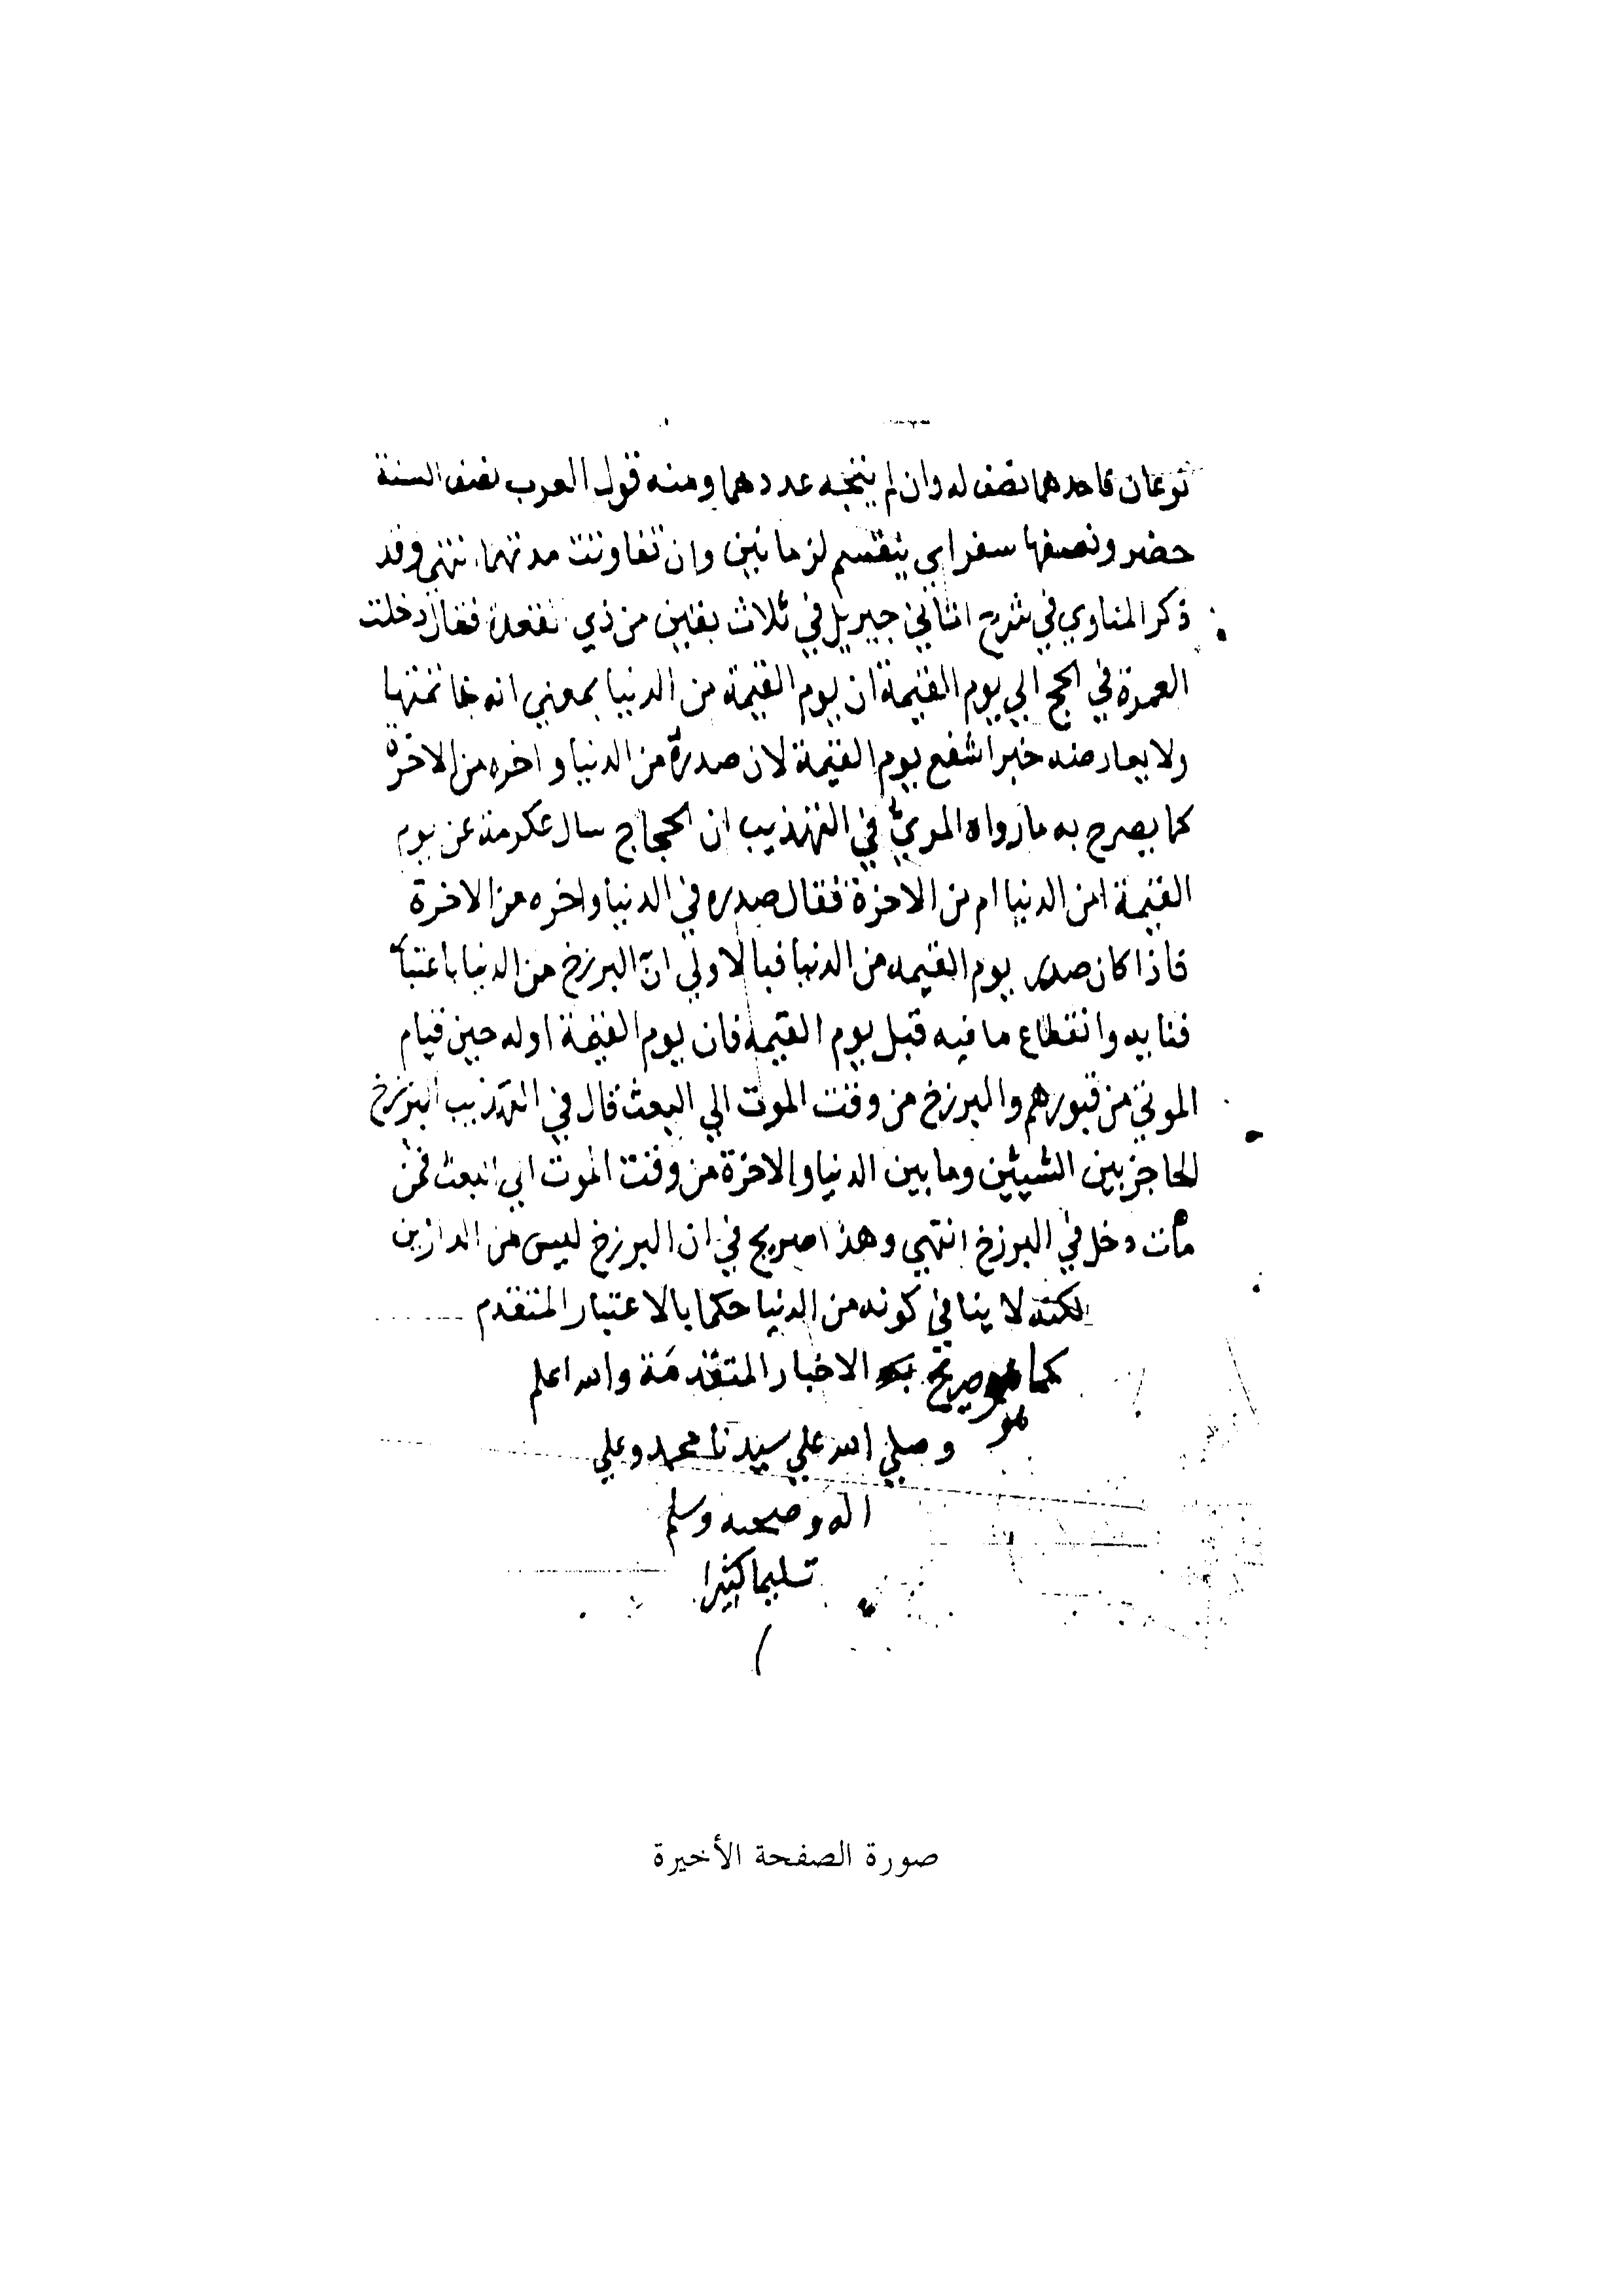 نوعان فاحدهما نصف له وان لم يتجه عددهما ومنه قول العرب نصف السنة
حضر ونصفها سفر اي ينقسم لزمانين وان تفاوتت مدتهما انتهى وقد
ذكر المناوي في شرح اتاني جبريل في ثلاث بقين من ذي القعدة فقال دخلت
العمرة في الحج الي يوم القيمة ان يوم القيمة من الدنيا بمعني انه خاتمتها
ولا يعارضه خبر اشفع يوم القيمة لان صدره من الدنيا واخره من الاخرة
كما يصرح به ما رواه المزي في التهذيب ان الحجاج سال عكرمة عن يوم
القيمة امن الدنيا ام من الاخرة فقال صدره في الدنيا واخره من الاخرة
فاذا كان صدر يوم القيمه من الدنيا فبالاولي انّ البرزخ من الدنيا باعتبا
فنايه وانقطاع ما فيه قبل يوم القيمه فان يوم القيمة اوله حين قيام
الموتي من قبورهم والبرزخ من وقت الموت الي البعث قال في التهذيب البرزخ
الحاجز بين الشيئين وما بين الدنيا والاخرة من وقت الموت الي البعث فمن
مات دخل في البرزخ انتهي وهذا صريح في ان البرزخ ليس من الدارين
لكنه لا ينافي كونه من الدنيا حكما بالاعتبار المتقدم
كما صريح الاخبار المتقدمة والله اعلم
هو
وصلي الله علي سيدنا محمد وعلي
اله وصحبه وسلم
تسليما كثيرا
صورة الصفحة الأخيرة